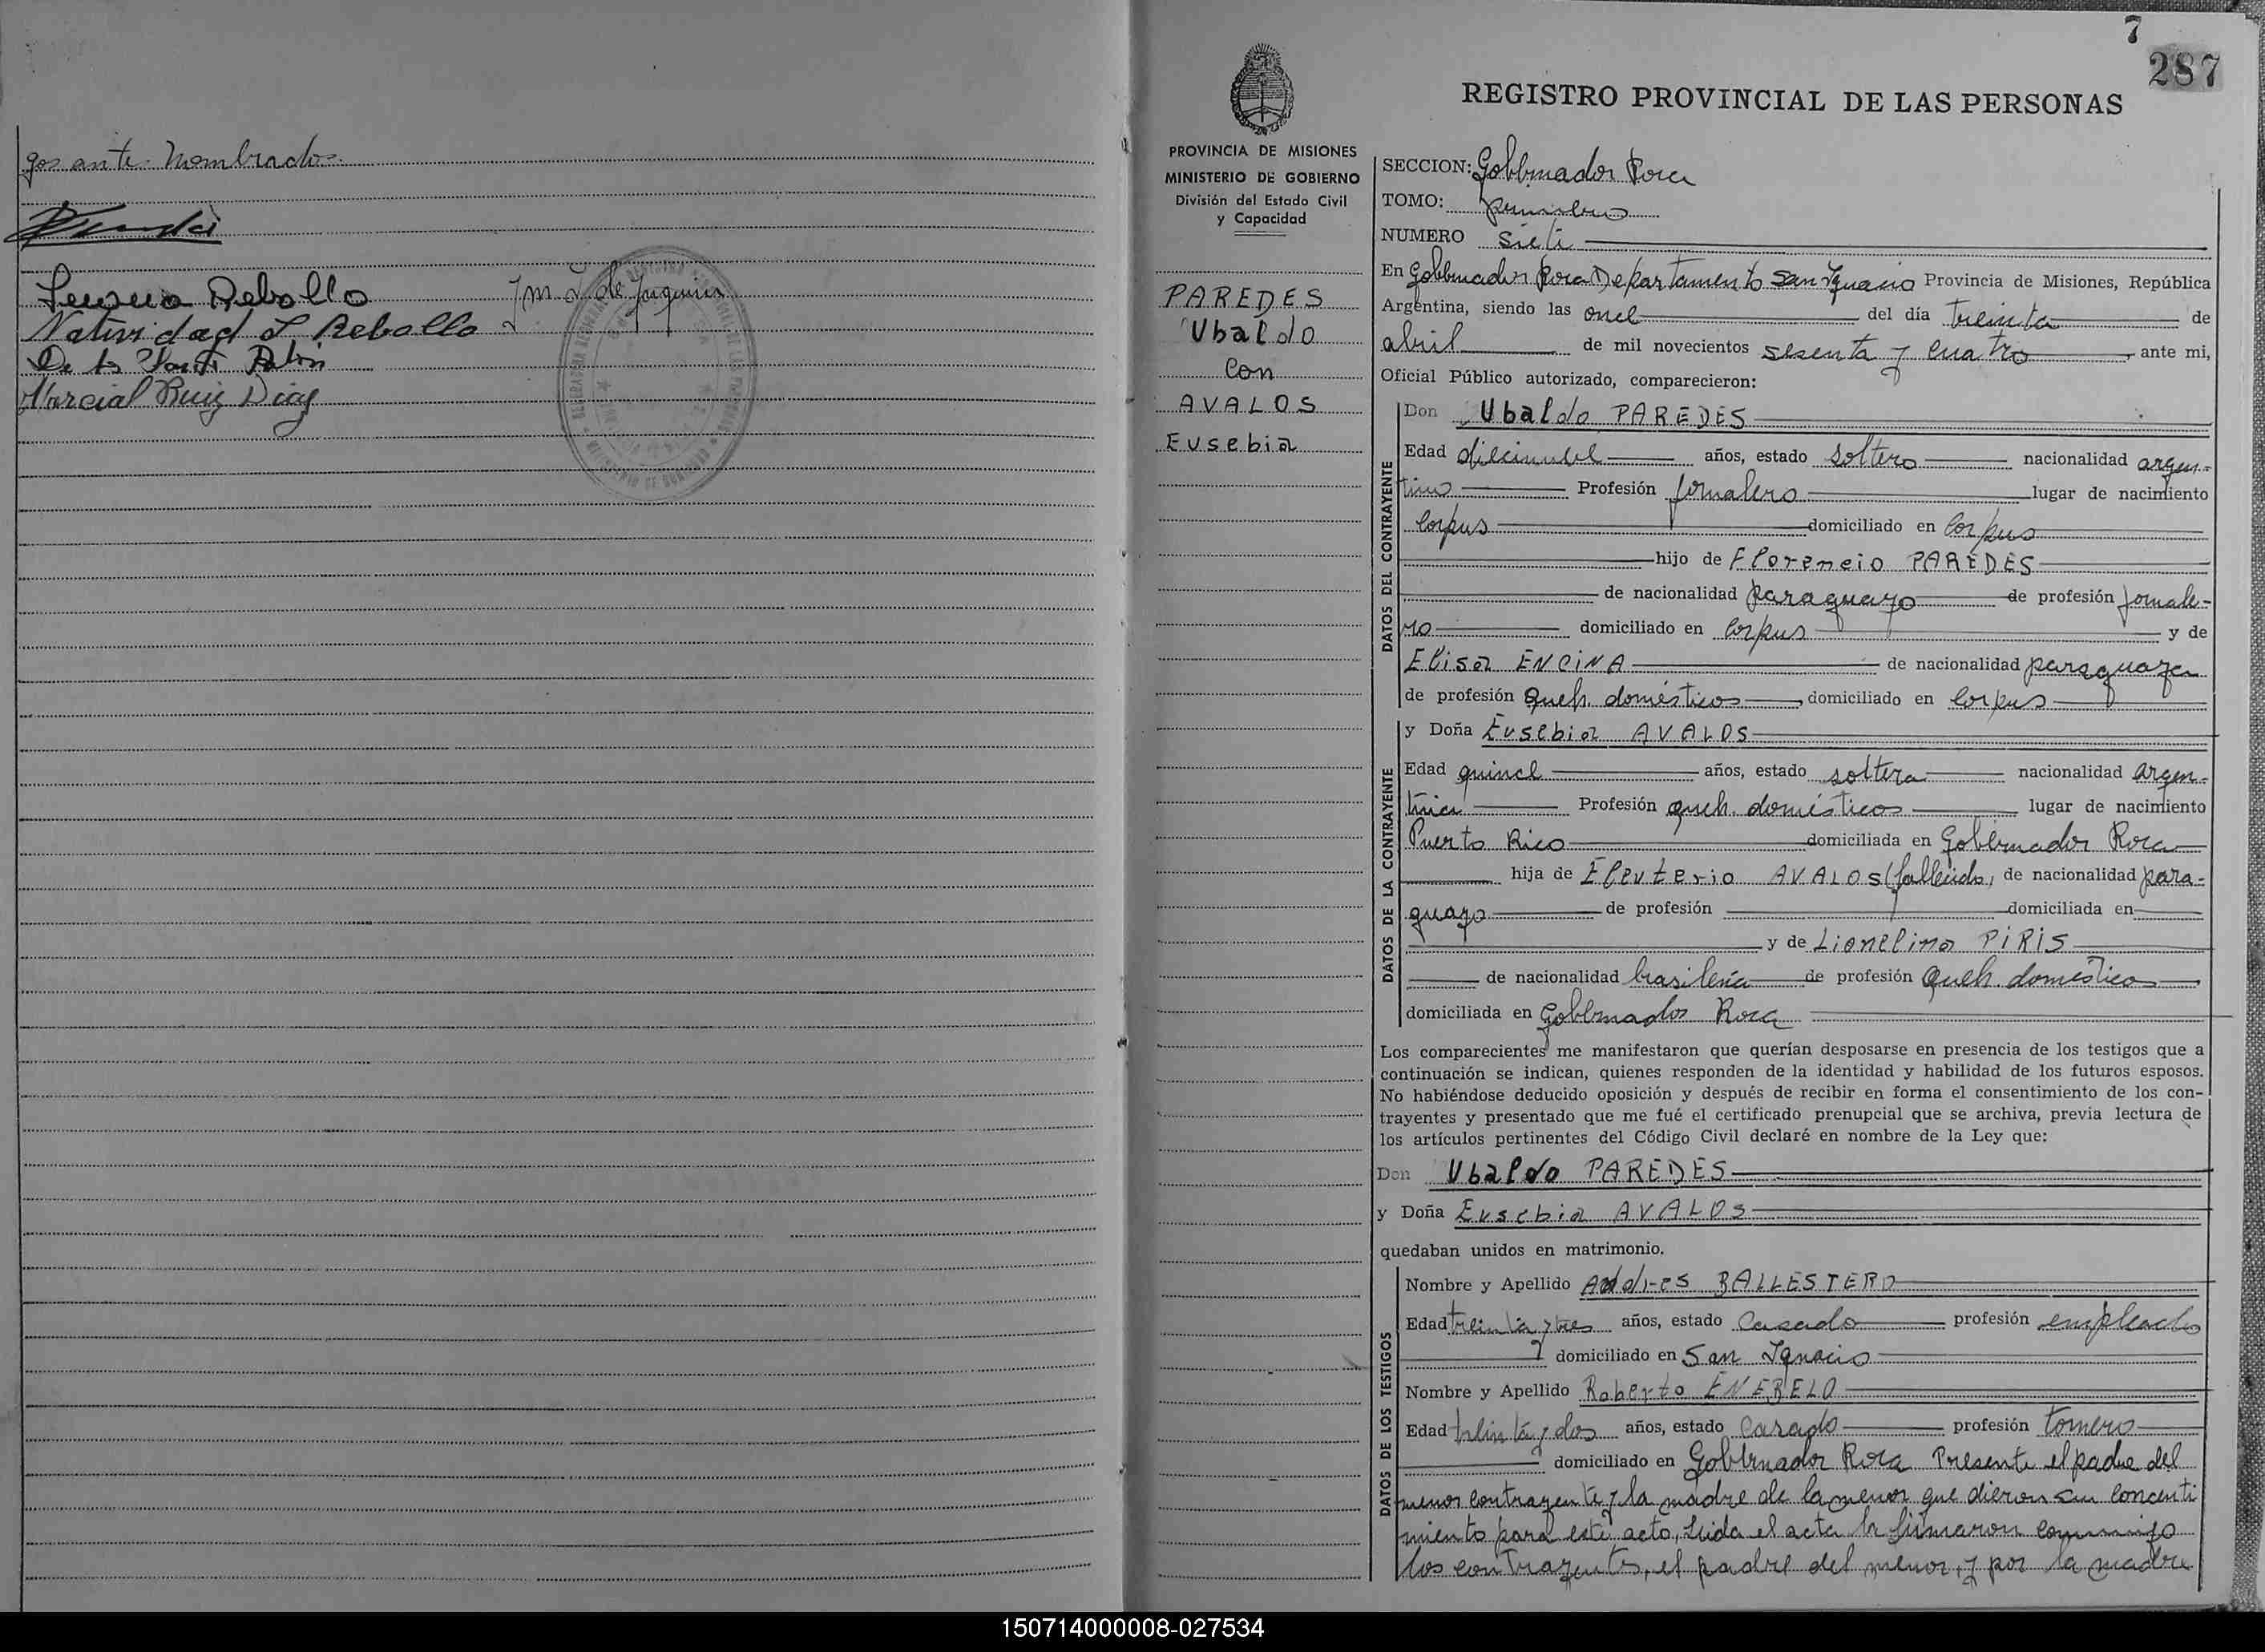 gos ante nombrados.
Natividad L. Rebollo
Marcial Ruiz Diaz
7
287
REGISTRO PROVINCIAL DE LAS PERSONAS
PROVINCIA DE MISIONES
MINISTERIO DE GOBIERNO
División del Estado Civil
y Capacidad
PAREDES
Ubaldo
Con
AVALOS
Eusebia
SECCION: Gobernador Roca
TOMO: primero
NUMERO siete
En Gobernador Roca Departamento San Ignacio Provincia de Misiones, República
Argentina, siendo las once del día treinta de
abril de mil novecientos sesenta y cuatro ante mi,
Oficial Público autorizado, comparecieron:
DATOS DEL CONTRAYENTE
Don Ubaldo PAREDES
Edad diecinueve años, estado soltero nacionalidad argen-
tino Profesión jornalero lugar de nacimiento
Corpus domiciliado en Corpus
hijo de Florencio PAREDES
de nacionalidad paraguayo de profesión jornale-
ro domiciliado en Corpus y de
Elisa ENCINA de nacionalidad paraguaya
de profesión queh. domésticos domiciliado en Corpus
DATOS DE LA CONTRAYENTE
y Doña Eusebia AVALOS
Edad quince años, estado soltera nacionalidad argen-
tina Profesión queh. domésticos lugar de nacimiento
Puerto Rico domiciliada en Gobernador Roca
hija de Eleuterio AVALOS (fallecido) de nacionalidad para-
guayo de profesión domiciliada en
y de Lionelina PIRIS
de nacionalidad brasileña de profesión queh. doméstico
domiciliada en Gobernador Roca
Los comparecientes me manifestaron que querían desposarse en presencia de los testigos que a
continuación se indican, quienes responden de la identidad y habilidad de los futuros esposos.
No habiéndose deducido oposición y después de recibir en forma el consentimiento de los con-
trayentes y presentado que me fué el certificado prenupcial que se archiva, previa lectura de
los artículos pertinentes del Código Civil declaré en nombre de la Ley que:
Don Ubaldo PAREDES
y Doña Eusebia AVALOS
quedaban unidos en matrimonio.
DATOS DE LOS TESTIGOS
Nombre y Apellido Andres BALLESTERO
Edad treinta y tres años, estado casado profesión empleado
domiciliado en San Ignacio
Nombre y Apellido Roberto ENEBELO
Edad treinta y dos años, estado casado profesión tornero
domiciliado en Gobernador Roca Presente el padre del
menor contrayente y la madre de la menor que dieron su concenti
miento para este acto, leida el acta la firmaron conmigo
los contrayentes, el padre del menor, y por la madre
150714000008-027534